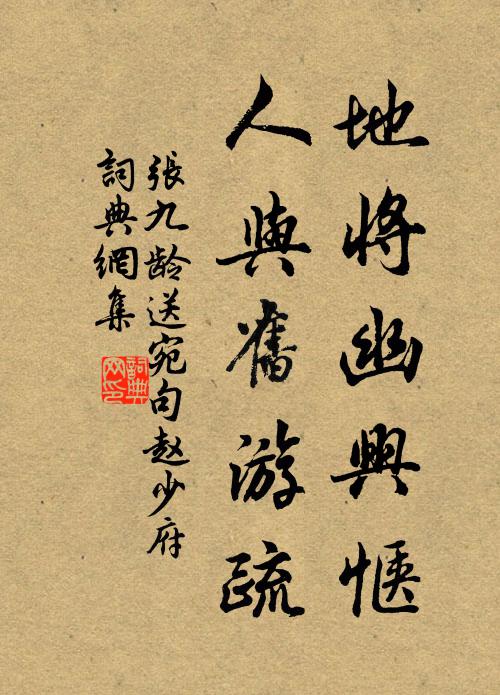 地將幽興愜
人與舊游疏
張九齡送宛句赵少府
詞典網集
詞典
网印